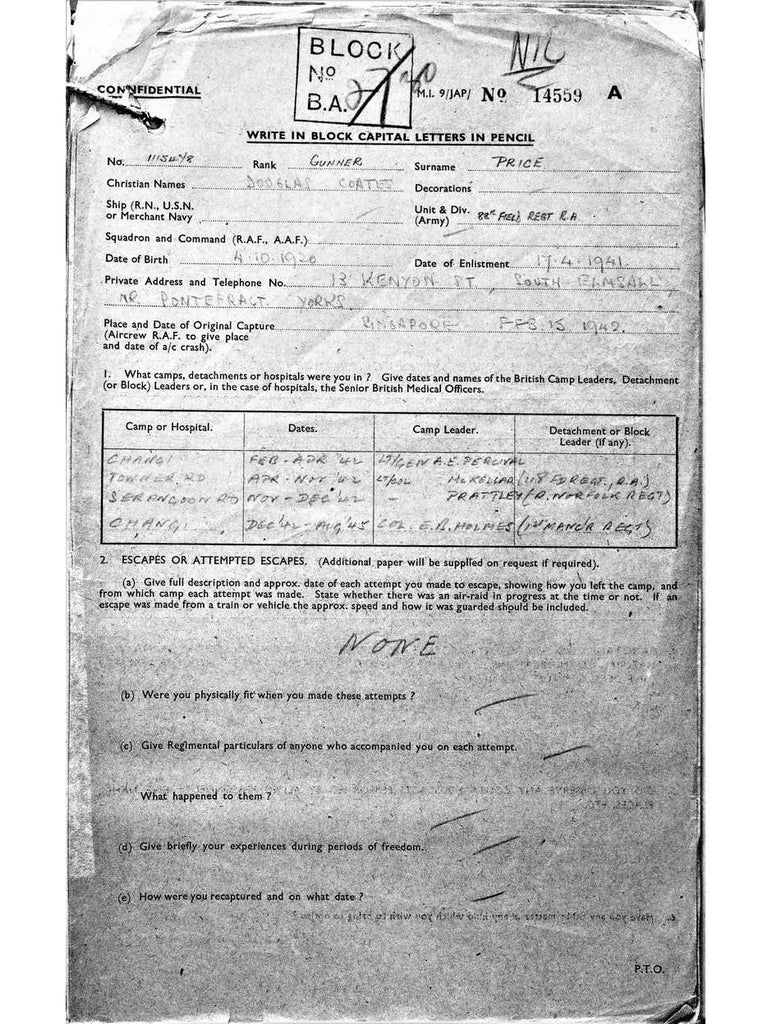 BLOCK
No
B.A.
NIL
CONFIDENTIAL
M.I. 9/JAP/ No 14559 A
WRITE IN BLOCK CAPITAL LETTERS IN PENCIL
No. Rank GUNNER Surname PRICE
Christian Names DOUGLAS COATES Decorations
Ship (R.N., U.S.N. or Merchant Navy
Unit & Div. (Army) 88th FIELD REGT R.A.
Squadron and Command (R.A.F., A.A.F.)
Date of Birth 4.10.1920 Date of Enlistment 17.4.1941
Private Address and Telephone No. 13 KENYON ST, SOUTH ELMSALL
NR PONTEFRACT YORKS
Place and Date of Original Capture SINGAPORE FEB. 15 1942.
(Aircrew R.A.F. to give place
and date of a/c crash).
1. What camps, detachments or hospitals were you in ? Give dates and names of the British Camp Leaders, Detachment
(or Block) Leaders or, in the case of hospitals, the Senior British Medical Officers.
Camp or Hospital. Dates. Camp Leader. Detachment or Block Leader (if any).
CHANGI FEB - APR '42 LT/GEN A.E. PERCIVAL
TOWNER RD APR - NOV '42 LT/COL McKELLAR (118 FD REGT., R.A.)
SERANGOON RD NOV - DEC '42 - PRATTLEY (R. NORFOLK REGT)
CHANGI DEC '42 - AUG '45 COL. E.B. HOLMES (1st MANC'R REGT)
2. ESCAPES OR ATTEMPTED ESCAPES. (Additional paper will be supplied on request if required).
(a) Give full description and approx. date of each attempt you made to escape, showing how you left the camp, and
from which camp each attempt was made. State whether there was an air-raid in progress at the time or not. If an
escape was made from a train or vehicle the approx. speed and how it was guarded should be included.
NONE
(b) Were you physically fit when you made these attempts ?
(c) Give Regimental particulars of anyone who accompanied you on each attempt.
What happened to them ?
(d) Give briefly your experiences during periods of freedom.
(e) How were you recaptured and on what date ?
P.T.O.